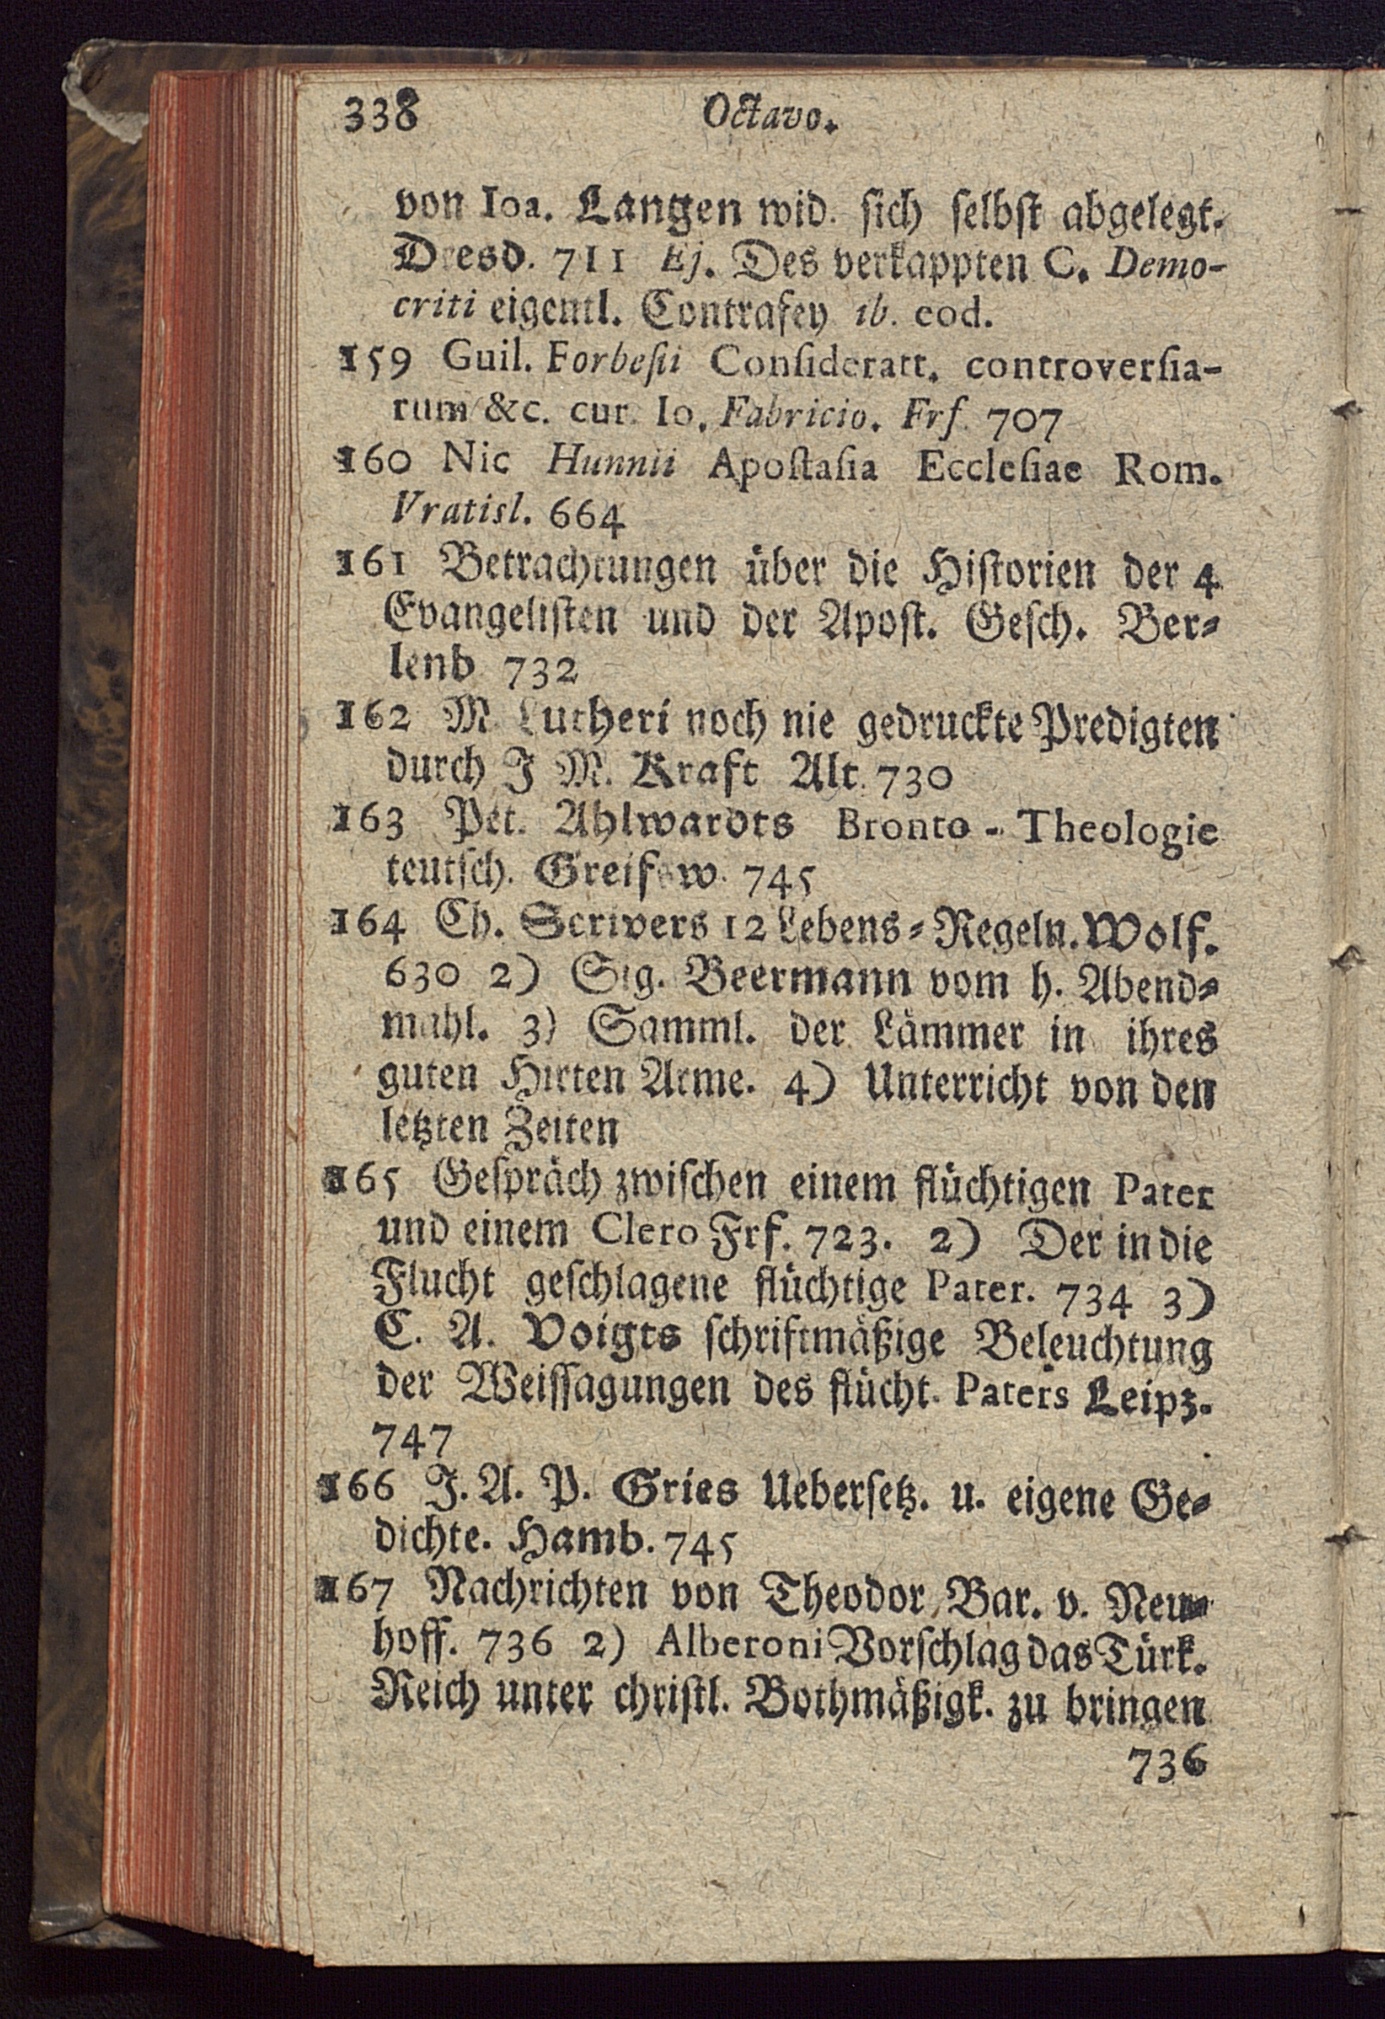 338 Octavo.
von Ioa. Langen wid. sich selbst abgelegt.
Dresd. 711 Ej. Des verkappten C. Demo-
criti eigentl. Contrafey ib. eod.
159 Guil. Forbesii Consideratt. controversia-
rum &c. cur. Io. Fabricio. Frf. 707
160 Nic Hunnii Apostasia Ecclesiae Rom.
Vratisl. 664
161 Betrachtungen über die Historien der 4
Evangelisten und der Apost. Gesch. Ber-
lenb 732
162 M Lutheri noch nie gedruckte Predigten
durch J M. Kraft Alt. 730
163 Pet. Ahlwardts Bronto-Theologie
teutsch. Greifsw. 745
164 Ch. Scrivers 12 Lebens-Regeln. Wolf.
630 2) Sig. Beermann vom h. Abend-
mahl. 3) Samml. der Lämmer in ihres
guten Hirten Arme. 4) Unterricht von den
letzten Zeiten
165 Gespräch zwischen einem flüchtigen Pater
und einem Clero Frf. 723. 2) Der in die
Flucht geschlagene flüchtige Pater. 734 3)
C. A. Voigts schriftmäßige Beleuchtung
der Weissagungen des flücht. Paters Leipz.
747
166 J. A. P. Gries Uebersetz. u. eigene Ge-
dichte. Hamb. 745
167 Nachrichten von Theodor, Bar. v. Neu-
hoff. 736 2) Alberoni Vorschlag das Türk.
Reich unter christl. Bothmäßigk. zu bringen
736